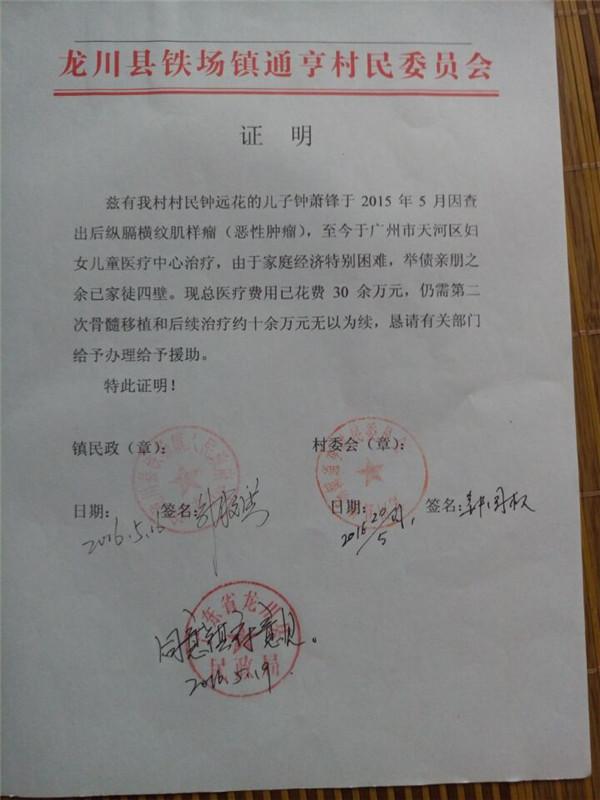 龙川县铁场镇通亨村民委员会
证 明
兹有我村村民钟远花的儿子钟萧锋于 2015 年 5 月因查
出后纵膈横纹肌样瘤（恶性肿瘤），至今于广州市天河区妇
女儿童医疗中心治疗，由于家庭经济特别困难，举债亲朋之
余已家徒四壁。现总医疗费用已花费 30 余万元，仍需第二
次骨髓移植和后续治疗约十余万元无以为续，恳请有关部门
给予办理给予援助。
特此证明！
镇民政（章）： 村委会（章）：
日期： 签名： 日期： 签名：
2016.5.16
同意镇村意见。
2016.5.19
东省龙川
民政局